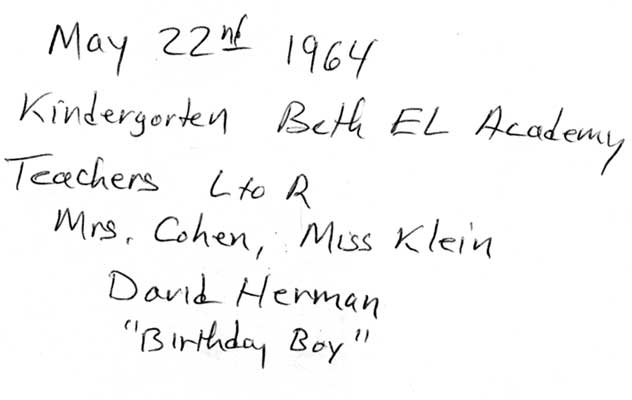 May 22nd 1964
Kindergorten Beth EL Academy
Teachers L to R
Mrs. Cohen, Miss Klein
David Herman
"Birthday Boy"